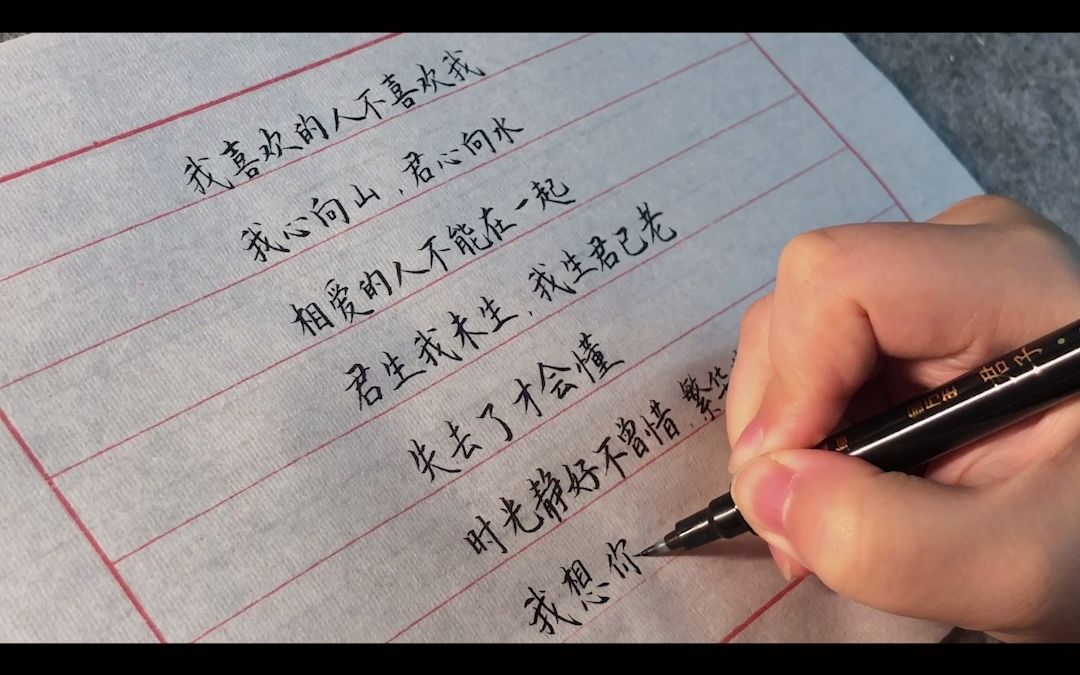 我喜欢的人不喜欢我
我心向山，君心向水
相爱的人不能在一起
君生我未生，我生君已老
失去了才会懂
时光静好不曾惜，繁华
我想你
君子